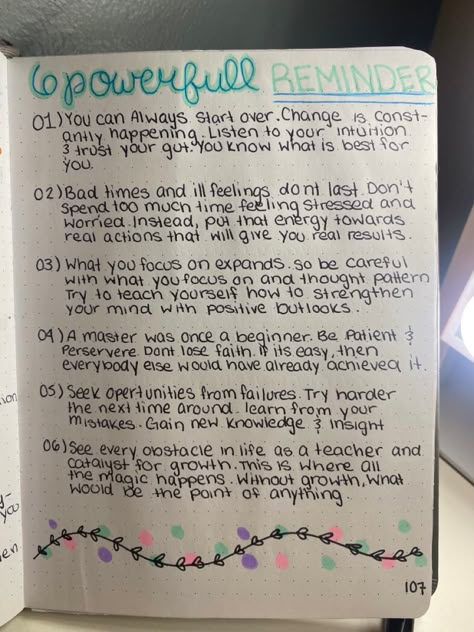 6 powerfull REMINDER
01) You can Always start over. Change is const-
antly happening. Listen to your intuition
& trust your gut. You know what is best for
you.
02) Bad times and ill feelings dont last. Don't
spend too much time feeling stressed and
worried. Instead, put that energy towards
real actions that will give you real results.
03) What you focus on expands. so be careful
with what you focus on and thought pattern
Try to teach yourself how to strengthen
your mind with positive outlooks.
04) A master was once a beginner. Be Patient &
Perservere. Dont lose faith. if its easy, then
everybody else would have already achieved it.
05) Seek opertunities from failures. Try harder
the next time around. learn from your
mistakes. Gain new knowledge & insight
06) See every obstacle in life as a teacher and
catalyst for growth. This is where all
the magic happens. Without growth, What
would be the point of anything.
107